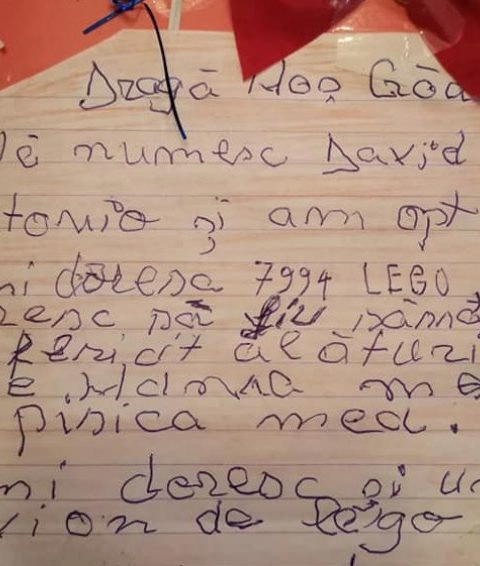 Dragă Moș Crăc
Mē numesc David
tonio și am opt
mi doresc 7994 LEGO
resc să fiu sănă
fericit alături
e mama me
pisica mea.
mi doresc și u
vion de Lego